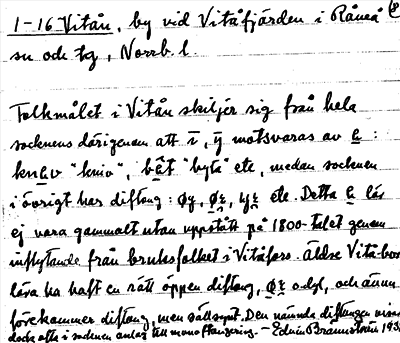 1-16 Vitån, by vid Vitåfjärden i Råneå
sn och tg, Norrb. l.
Folkmålet i Vitån skiljer sig från hela
socknens därigenom att ī, ȳ motsvaras av e :
"kniv", "byta" etc, medan socknen
i övrigt har diftong : etc. Detta e lär
ej vara gammalt utan uppstått på 1800-talet genom
inflytande från bruksfolket i Vitåfors. Äldre Vitåbor
lära ha haft en rätt öppen diftong, o.dyl., och ännu
förekommer diftong, men sällsynt. Den nämnda diftongen visar
dock ofta i socknen anlag till monoftongering. – Edvin Brännström 193